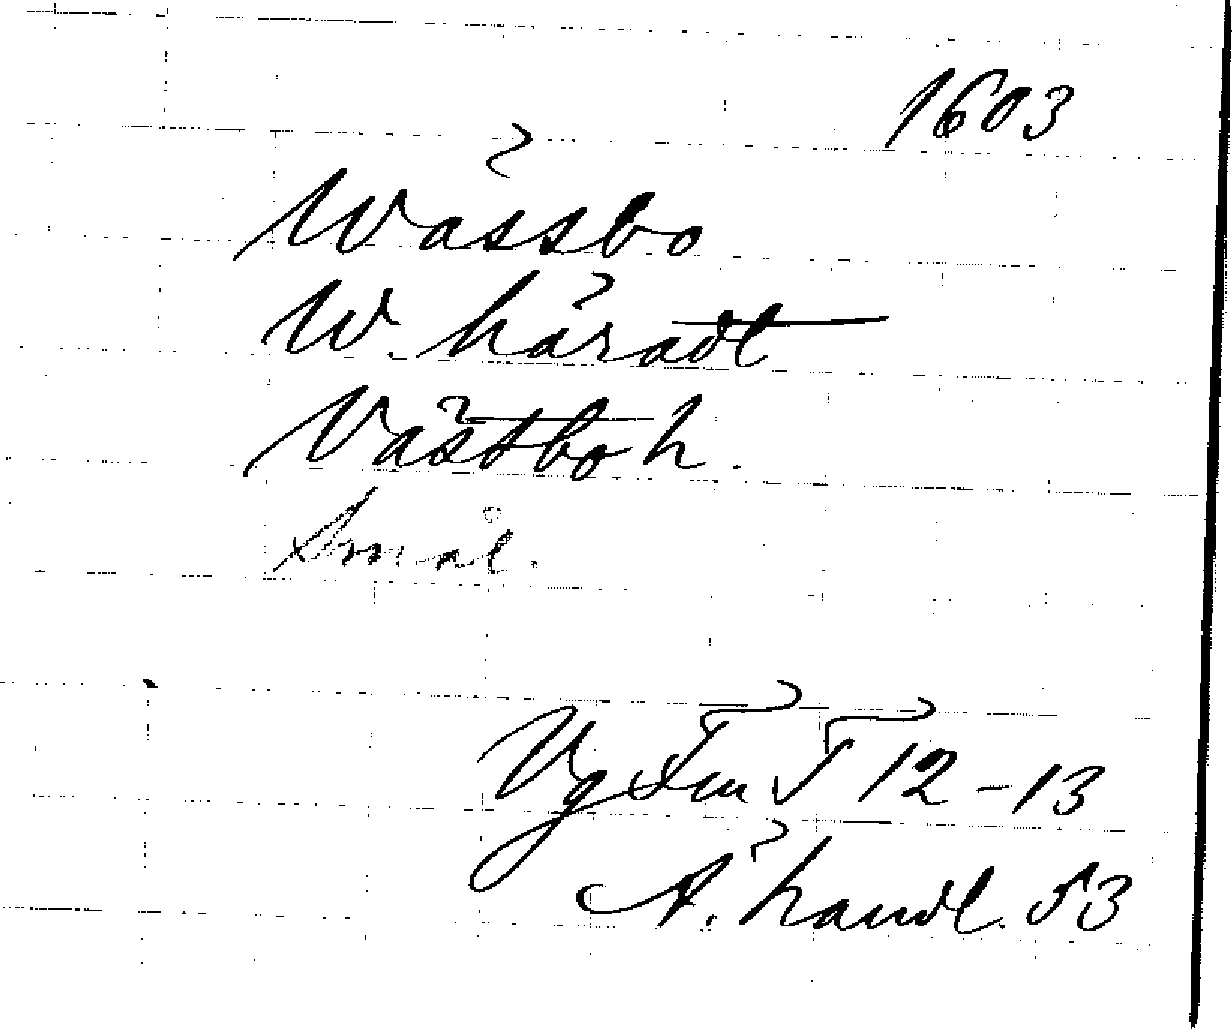 1603
Wässbo
W. häradt
Västbo h.
Smål.
Vg Fm T 12-13
A. handl. 53